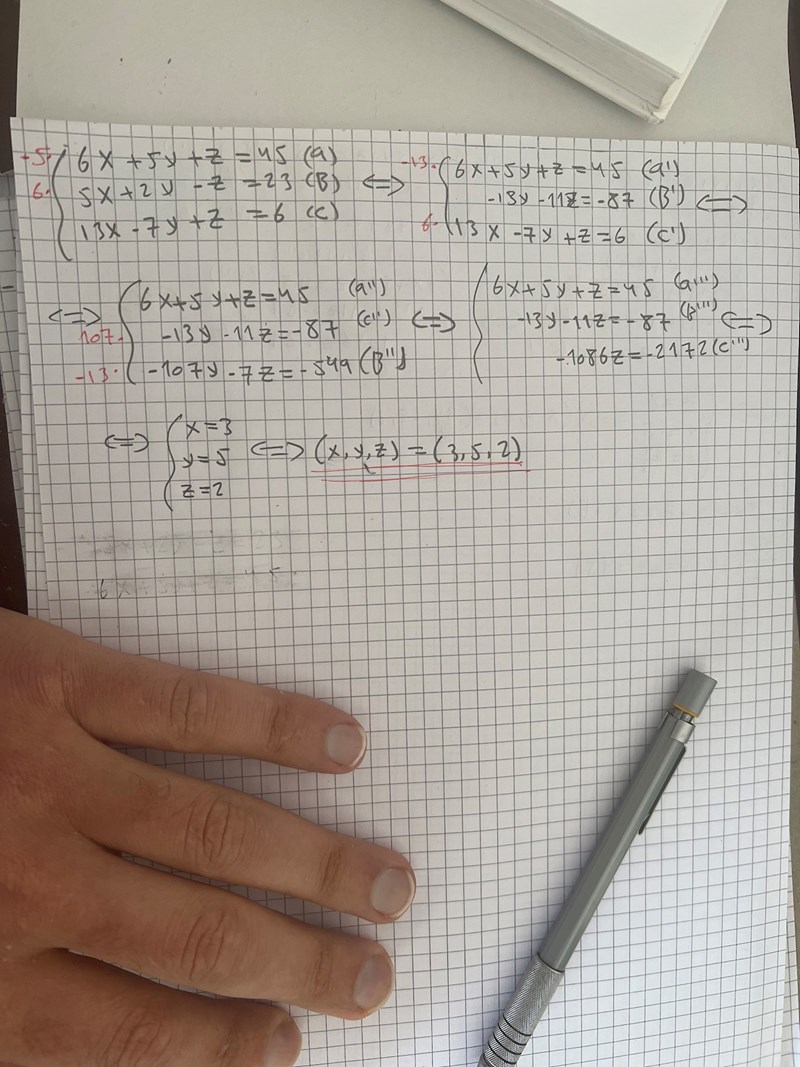 -5· 6x + 5y + z = 45 (a)
6· 5x + 2y - z = 23 (B) ⟺
13x - 7y + z = 6 (c)
-13· 6x + 5y + z = 45 (a')
-13y - 11z = -87 (B') ⟺
6· 13x - 7y + z = 6 (c')
⟺ 6x + 5y + z = 45 (a'')
107· -13y - 11z = -87 (c'') ⟺
-13· -107y - 7z = -549 (B'')
6x + 5y + z = 45 (a''')
-13y - 11z = -87 (B''') ⟺
-1086z = -2172 (c''')
x = 3
⟺ y = 5 ⟺ (x, y, z) = (3, 5, 2)
z = 2